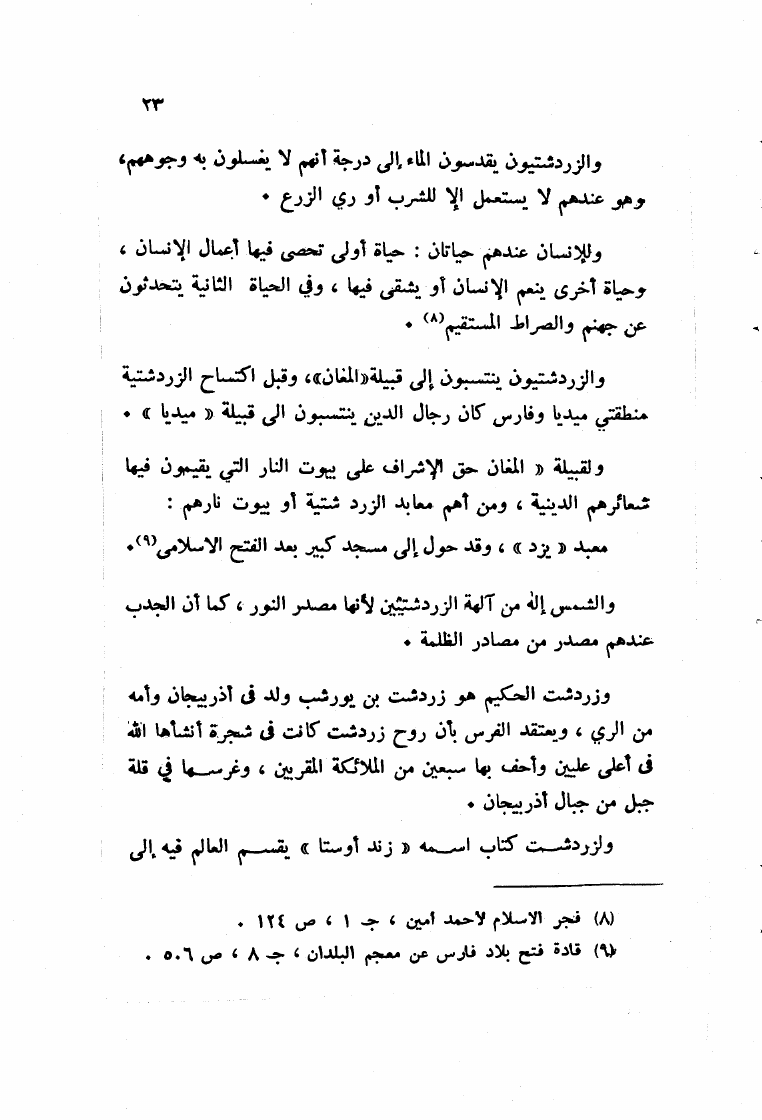 ٢٣
والزردشتيون يقدسون الماء إلى درجة أنهم لا يغسلون به وجوههم،
وهو عندهم لا يستعمل الإ للشرب أو ري الزرع .
وللإنسان عندهم حياتان : حياة أولى تحصى فيها أعمال الإنسان ،
وحياة أخرى ينعم الإنسان أو يشقى فيها ، وفي الحياة الثانية يتحدثون
عن جهنم والصراط المستقيم(٨) .
والزردشتيون ينتسبون إلى قبيلة«المغان»، وقبل اكتساح الزردشتية
منطقتي ميديا وفارس كان رجال الدين ينتسبون الى قبيلة « ميديا » .
ولقبيلة « المغان حق الإشراف على بيوت النار التي يقيمون فيها
شعائرهم الدينية ، ومن أهم معابد الزرد شتية أو بيوت نارهم :
معبد « يزد » ، وقد حول إلى مسجد كبير بعد الفتح الاسلامي(٩).
والشمس إله من آلهة الزردشتيين لأنها مصدر النور ، كما أن الجدب
عندهم مصدر من مصادر الظلمة .
وزردشت الحكيم هو زردشت بن يورشب ولد فى أذربيجان وأمه
من الري ، ويعتقد الفرس بأن روح زردشت كانت فى شجرة أنشأها الله
فى أعلى عليين وأحف بها سبعين من الملائكة المقربين ، وغرسها في قلة
جبل من جبال أذربيجان .
ولزردشت كتاب اسمه « زند أوستا » يقسم العالم فيه إلى
(٨) فجر الاسلام لاحمد أمين ، جـ ١ ، ص ١٢٤ .
(٩) قادة فتح بلاد فارس عن معجم البلدان ، جـ ٨ ، ص ٥٠٦ .